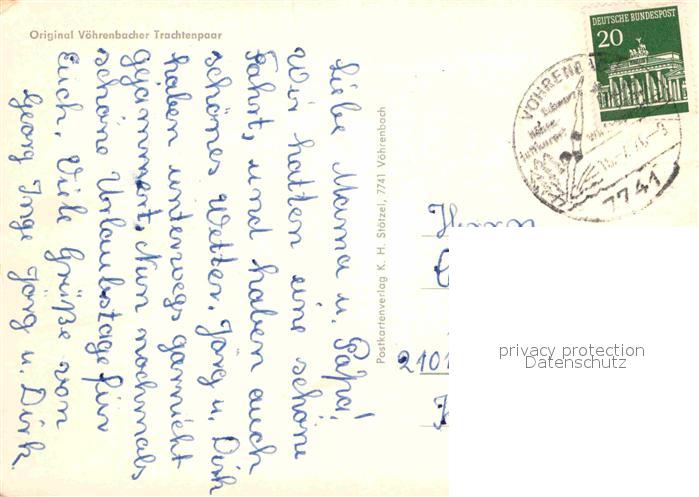 Original Vöhrenbacher Trachtenpaar
Liebe Mama u. Papa!
Wir hatten eine schöne
Fahrt, und haben auch
schönes Wetter. Jörg u. Dirk
haben unterwegs garnicht
gejammert. Nun nochmals
schöne Urlaubstage für
Euch. Viele Grüße von
Georg Inge Jörg u. Dirk.
Postkartenverlag K. H. Stötzel, 7741 Vöhrenbach
DEUTSCHE BUNDESPOST
20
VÖHRENBA
7741
Herrn
2101
privacy protection
Datenschutz